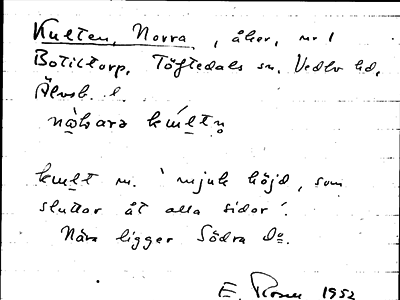 Kulten, Norra, åker, nr 1
Botiltorp, Töftedals sn, Vedbo hd,
Älvsb. l.
kult m. 'mjuk höjd, som
sluttar åt alla sidor'.
Nära ligger Södra Do.
E. Rosen 1952